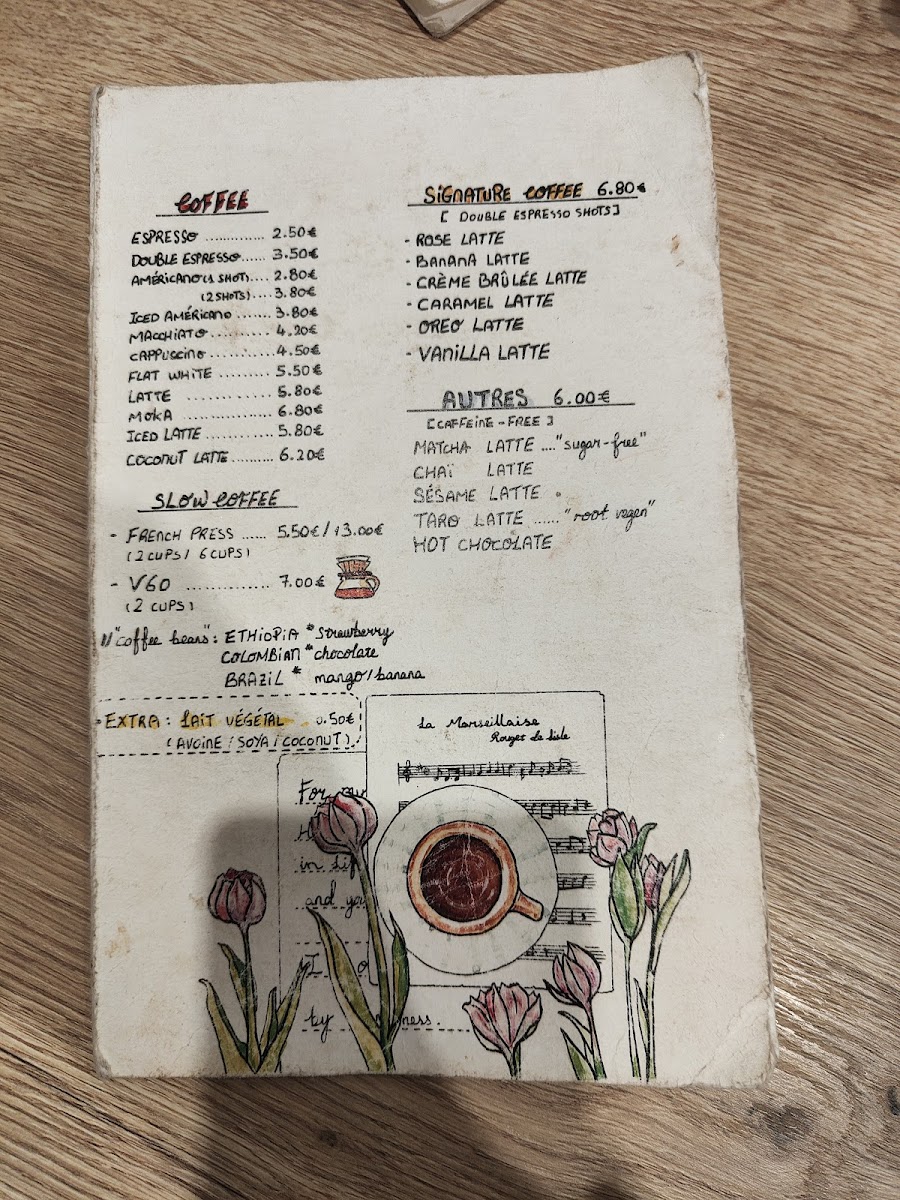 COFFEE
ESPRESSO .............. 2.50€
DOUBLE ESPRESSO...... 3.50€
AMÉRICANO (1 SHOT).... 2.80€
(2 SHOTS).... 3.80€
ICED AMÉRICANO ....... 3.80€
MACCHIATO .......... 4.20€
CAPPUCCINO ........... 4.50€
FLAT WHITE ......... 5.50€
LATTE ............ 5.80€
MOKA ................ 6.80€
ICED LATTE ............ 5.80€
COCONUT LATTE ......... 6.20€
SLOW COFFEE
- FRENCH PRESS ...... 5.50€ / 13.00€
(2 CUPS / 6 CUPS)
- V60 ................ 7.00€
(2 CUPS)
"coffee beans": ETHIOPIA * strawberry
COLOMBIAN * chocolate
BRAZIL * mango/banana
EXTRA : LAIT VÉGÉTAL 0.50€
(AVOINE / SOYA / COCONUT)
SIGNATURE COFFEE 6.80€
[ DOUBLE ESPRESSO SHOTS ]
- ROSE LATTE
- BANANA LATTE
- CRÈME BRÛLÉE LATTE
- CARAMEL LATTE
- OREO LATTE
- VANILLA LATTE
AUTRES 6.00€
[CAFFEINE - FREE ]
MATCHA LATTE ...."sugar-free"
CHAÏ LATTE
SÉSAME LATTE
TARO LATTE ......."root vegan"
HOT CHOCOLATE
La Marseillaise
Rouget de Lisle
For
in
and
I
ty